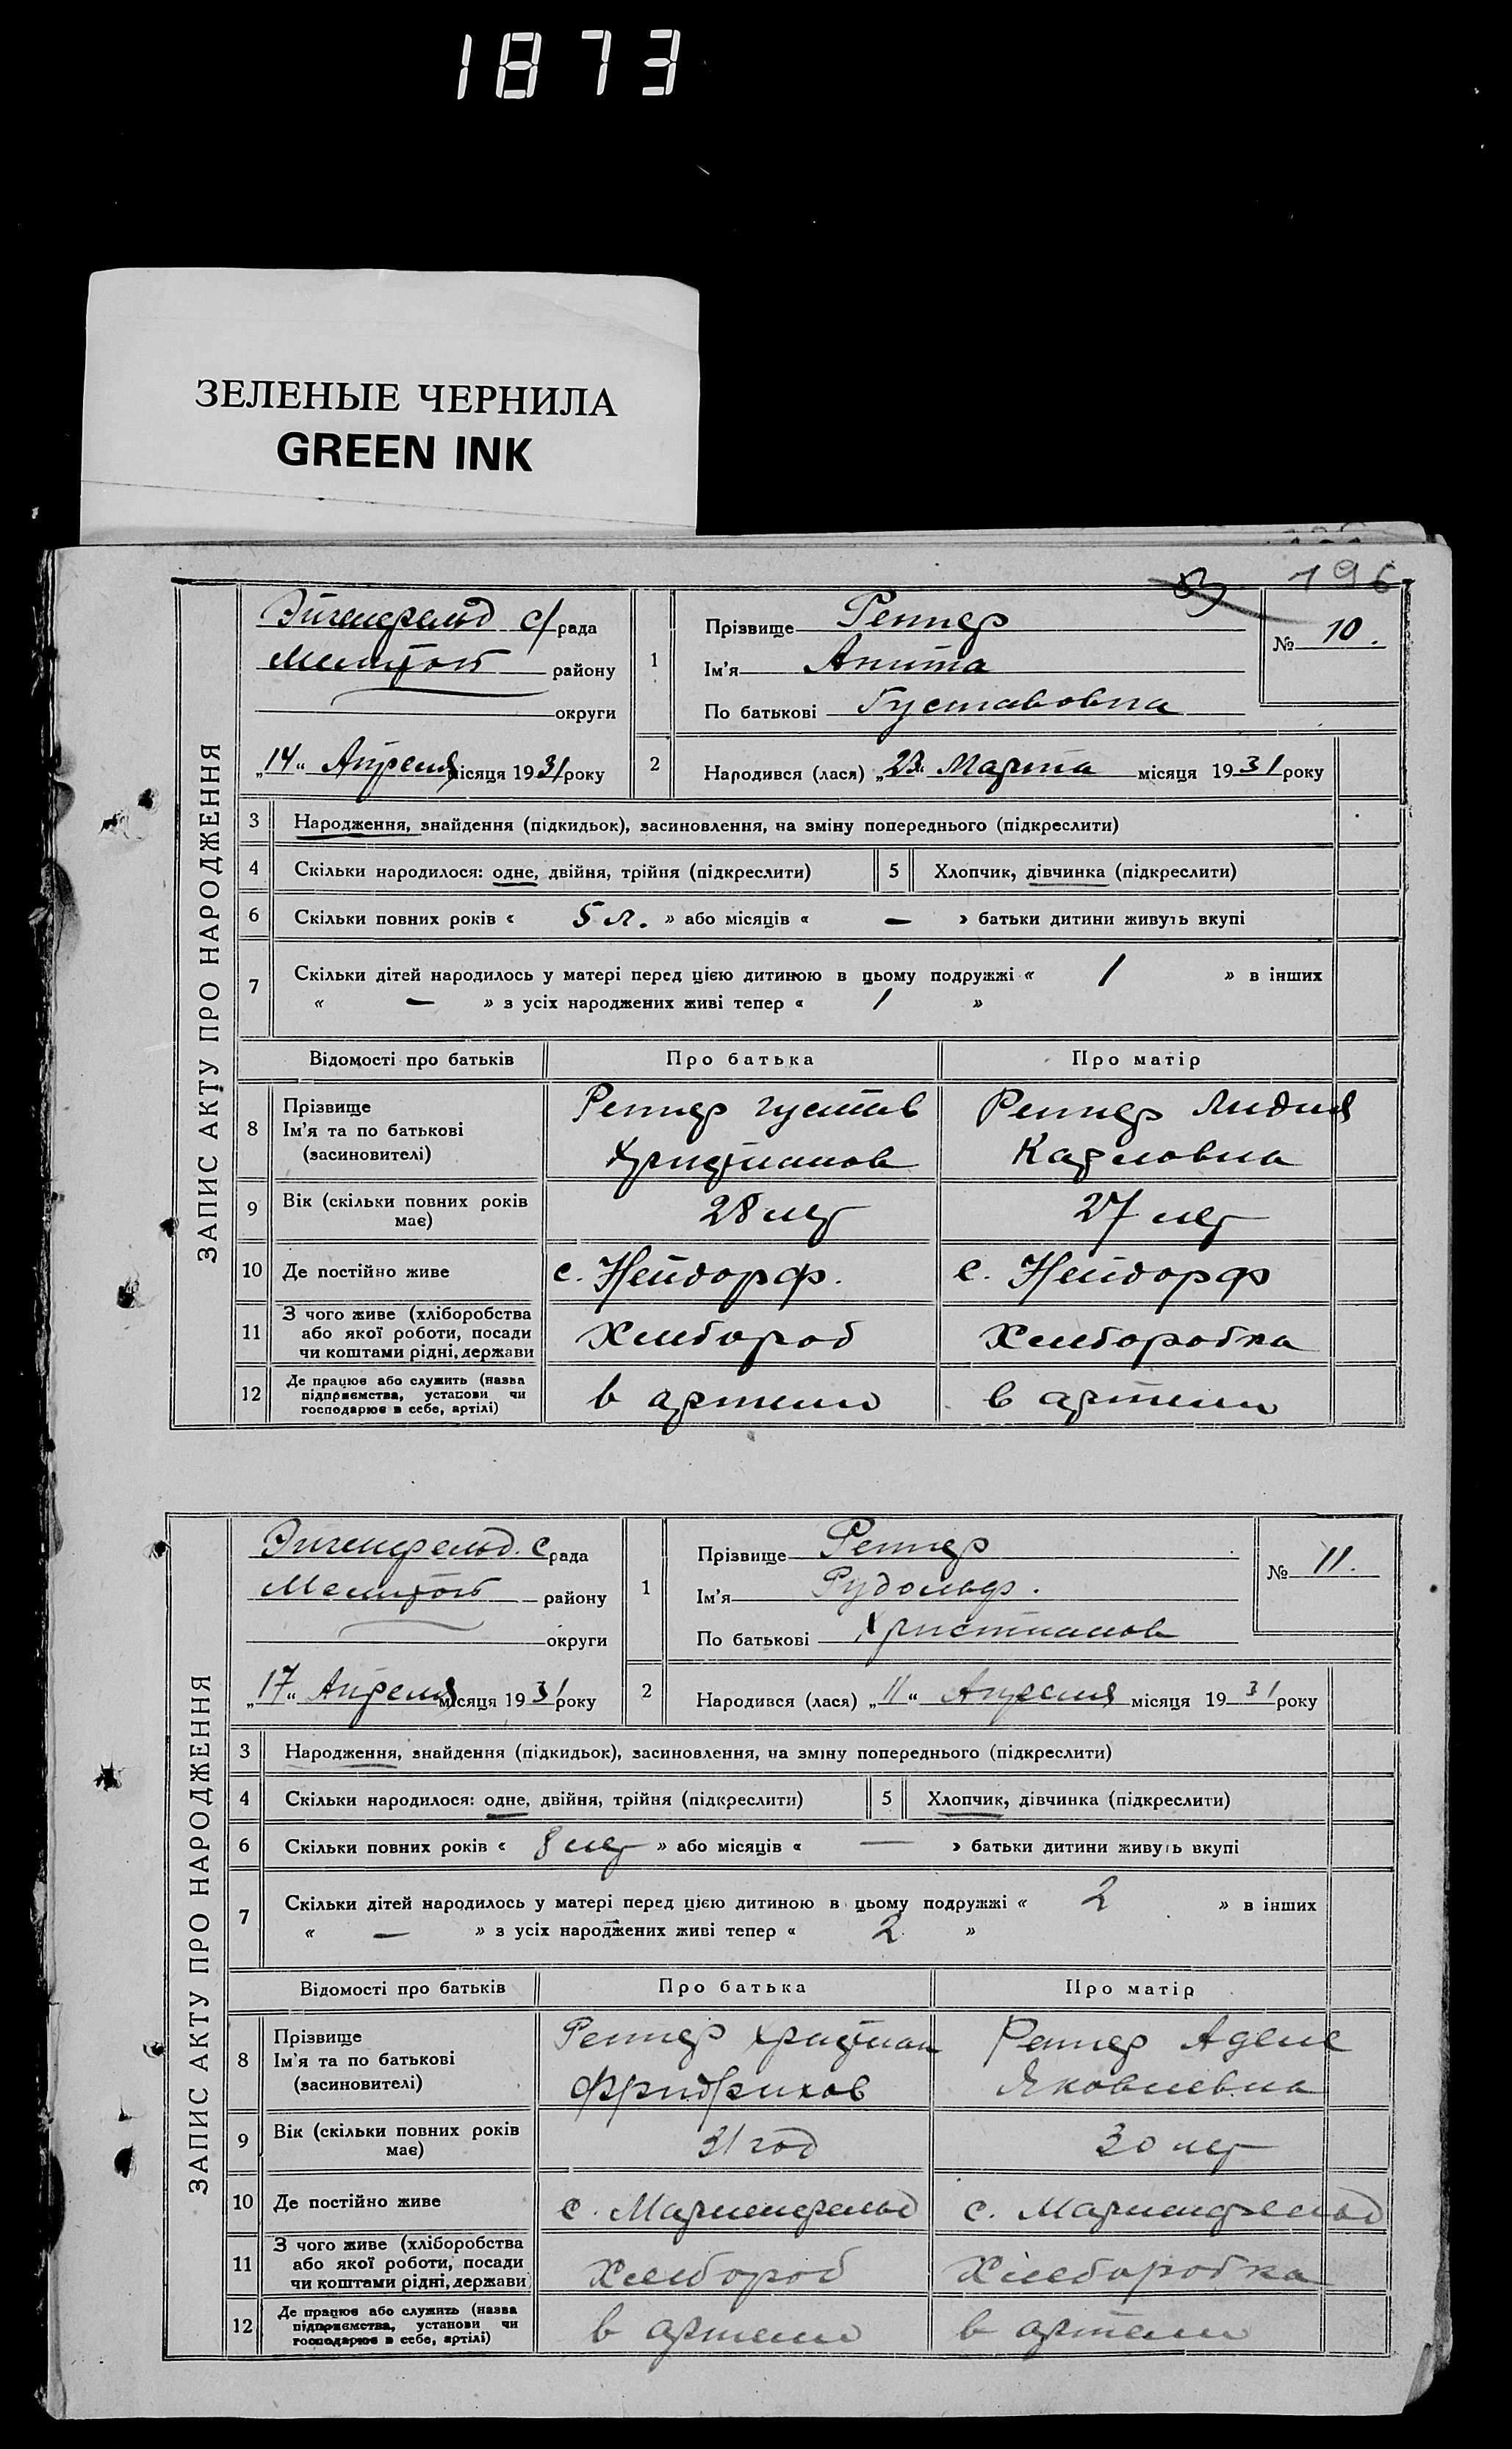 1873
ЗЕЛЕНЫЕ ЧЕРНИЛА
GREEN INK
196
ЗАПИС АКТУ ПРО НАРОДЖЕННЯ
Эйгенфельд с/рада
Мелитоп району
округи
„14“ Апреля місяця 1931 року
1
Прізвище Реппер
Ім'я Анита
По батькові Густавовна
№ 10.
2
Народився (лася) „23“ Марта місяця 1931 року
3 Народження, знайдення (підкидьок), засиновлення, на зміну попереднього (підкреслити)
4 Скільки народилося: одне, двійня, трійня (підкреслити) 5 Хлопчик, дівчинка (підкреслити)
6 Скільки повних років « 5 л. » або місяців « — » батьки дитини живуть вкупі
7 Скільки дітей народилось у матері перед цією дитиною в цьому подружжі « 1 » в інших
« — » з усіх народжених живі тепер « 1 »
Відомості про батьків Про батька Про матір
8 Прізвище Ім'я та по батькові (засиновителі)
Реппер Густав Христианов
Реппер Лидия Карловна
9 Вік (скільки повних років має) 28 лет 27 лет
10 Де постійно живе с. Нейдорф. с. Нейдорф
11 З чого живе (хліборобства або якої роботи, посади чи коштами рідні, держави
Хлебороб Хлеборобка
12 Де працює або служить (назва підприємства, установи чи господарює в себе, артілі)
в артели в артели
ЗАПИС АКТУ ПРО НАРОДЖЕННЯ
Эйгенфельд. с рада
Мелитоп району
округи
„17“ Апреля місяця 1931 року
1
Прізвище Реппер
Ім'я Рудольф.
По батькові Христианов
№ 11.
2
Народився (лася) „11“ Апреля місяця 1931 року
3 Народження, знайдення (підкидьок), засиновлення, на зміну попереднього (підкреслити)
4 Скільки народилося: одне, двійня, трійня (підкреслити) 5 Хлопчик, дівчинка (підкреслити)
6 Скільки повних років « 8 лет » або місяців « — » батьки дитини живуть вкупі
7 Скільки дітей народилось у матері перед цією дитиною в цьому подружжі « 2 » в інших
« — » з усіх народжених живі тепер « 2 »
Відомості про батьків Про батька Про матір
8 Прізвище Ім'я та по батькові (засиновителі)
Реппер Христиан Фридрихов
Реппер Аделе Яковлевна
9 Вік (скільки повних років має) 31 год 30 лет
10 Де постійно живе с. Мариенфельд с. Мариенфельд
11 З чого живе (хліборобства або якої роботи, посади чи коштами рідні, держави
Хлебороб Хлеборобка
12 Де працює або служить (назва підприємства, установи чи господарює в себе, артілі)
в артели в артели